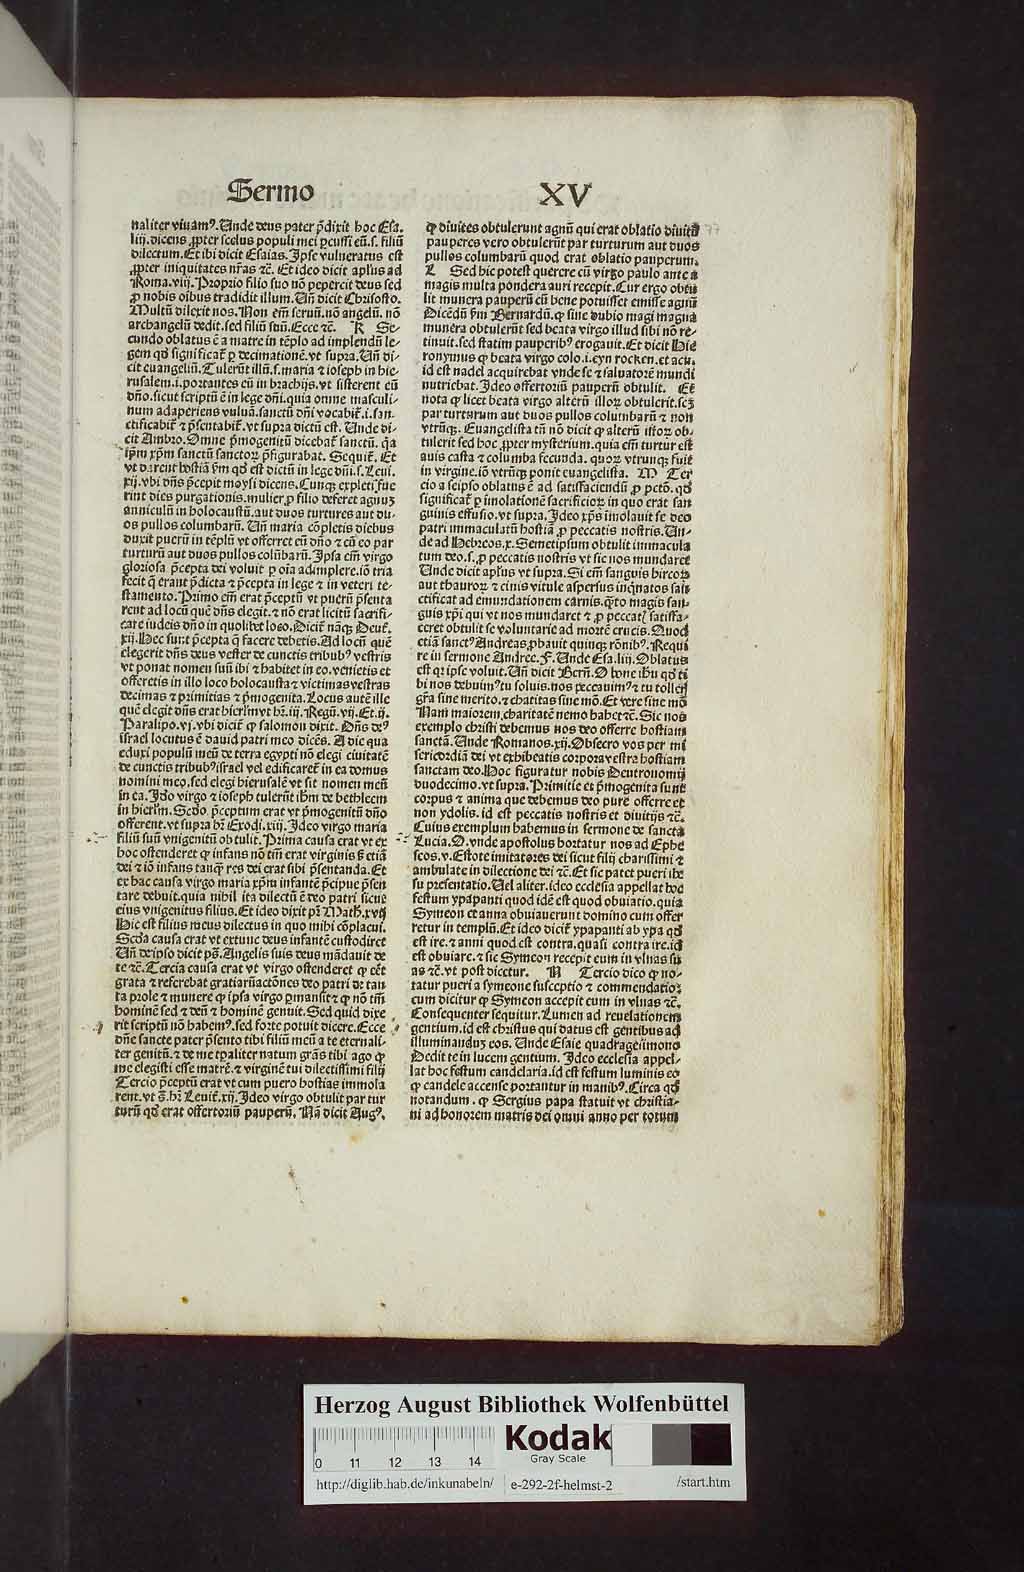 Sermo
XV
naliter viuamꝰ. Unde deus pater p̄dixit hoc Esa.
liij. dicens ꝓpter scelus populi mei ꝑcussi eū. s. filiū
dilectum. Et ibi dicit Esaias. Ipse vulneratus est
ꝓpter iniquitates nr̄as ⁊c̄. Et ideo dicit apl̄us ad
Roma. viij. Proprio filio suo nō pepercit deus sed
ꝓ nobis oībus tradidit illum. Un̄ dicit Chrisosto.
Multū dilexit nos. Non em̄ seruū. nō angelū. nō
archangelū dedit. sed filiū suū. Ecce ⁊c̄. K Se-
cundo oblatus ē a matre in tēplo ad implendū le-
gem qd̄ significat̄ ꝑ decimationē. vt supra. Un̄ di-
cit euangeliū. Tulerūt illū. s. maria ⁊ ioseph in hie-
rusalem. i. portantes eū in brachijs. vt sisterent eū
dn̄o. sicut scriptū ē in lege dn̄i. quia omne masculi-
num adaperiens vuluā. sanctū dn̄i vocabit̄. i. san-
ctificabit̄ ⁊ p̄sentabit̄. vt supra dictū est. Unde di-
cit Ambro. Omne p̄mogenitū dicebat̄ sanctū. q̄a
ip̄m xp̄m sanctū sanctoꝝ p̄figurabat. Sequit̄. Et
vt darent hostiā p̄m qd̄ est dictū in lege dn̄i. s. Leui.
xij. vbi dn̄s p̄cepit moysi dicens. Cunqꝫ expleti fue
rint dies purgationis. mulier ꝓ filio deferet agnuꝫ
anniculū in holocaustū. aut duos turtures aut du-
os pullos columbarū. Un̄ maria cōpletis diebus
duxit puerū in tēplū vt offerret eū dn̄o ⁊ cū eo par
turturū aut duos pullos colūbarū. Ipsa em̄ virgo
gloriosa p̄cepta dei voluit ꝑ oīa adimplere. iō tria
fecit q̄ erant p̄dicta ⁊ p̄cepta in lege ⁊ in veteri te-
stamento. Primo em̄ erat p̄ceptū vt puerū p̄senta
rent ad locū quē dn̄s elegit. ⁊ nō erat licitū sacrifi-
care iudeis dn̄o in quolibet loco. Dicit̄ nāqꝫ Deut̄.
xij. Hec sunt p̄cepta q̄ facere debetis. Ad locū quē
elegerit dn̄s deus vester de cunctis tribubꝰ vestris
vt ponat nomen suū ibi ⁊ habitet in eo. venietis et
offeretis in illo loco holocausta ⁊ victimas vestras
decimas ⁊ primitias ⁊ p̄mogenita. Locus autē ille
quē elegit dn̄s erat hierl̄m vt hr̄. iij. Regū. vij. Et. ij.
Paralipo. vj. vbi dicit̄ ꝙ salomon dixit. Dn̄s deꝰ
israel locutus ē dauid patri meo dicēs. A die qua
eduxi populū meū de terra egypti nō elegi ciuitatē
de cunctis tribubꝰ israel vel edificaret̄ in ea domus
nomini meo. sed elegi hierusalē vt sit nomen meū
in ea. Idō virgo ⁊ ioseph tulerūt ih̄m de bethleem
in hierl̄m. Scdo p̄ceptum erat vt p̄mogenitū dn̄o
offerent. vt supra hr̄ Exodi. xiij. Ideo virgo maria
filiū suū vnigenitū obtulit. Prima causa erat vt ex
hoc ostenderet ꝙ infans nō tm̄ erat virginis s̄ etiā
dei ⁊ iō infans tanqꝫ res dei erat sibi p̄sentanda. Et
ex hac causa virgo maria xp̄m infantē p̄cipue p̄sen
tare debuit. quia nihil ita dilectū ē deo patri sicut
eius vnigenitus filius. Et ideo dixit pr̄ Math. xvij
Hic est filius meus dilectus in quo mihi cōplacui.
Scd̄a causa erat vt extunc deus infantē custodiret
Un̄ de ipso dicit ps̄. Angelis suis deus mādauit de
te ⁊c̄. Tercia causa erat vt virgo ostenderet ꝙ eēt
grata ⁊ referebat gratiaruactōnes deo patri de tan
ta prole ⁊ munere ꝙ ipsa virgo ꝑmansit ⁊ ꝙ nō tm̄
hominē sed ⁊ deū ⁊ hominē genuit. Sed quid dixe
rit scriptū nō habemꝰ. sed forte potuit dicere. Ecce
dn̄e sancte pater p̄sento tibi filiū meū a te eternali-
ter genitū. ⁊ de me tꝑaliter natum grās tibi ago ꝙ
me elegisti esse matrē. ⁊ virginē tui dilectissimi filij
Tercio p̄ceptū erat vt cum puero hostias immola
rent. vt s̄. hr̄ Leuit̄. xij. Ideo virgo obtulit par tur
turū qd̄ erat offertoriū pauperū. Nā dicit Augꝰ.
ꝙ diuites obtulerunt agnū qui erat oblatio diuitū
pauperes vero obtulerūt par turturum aut duos
pullos columbarū quod erat oblatio pauperum.
L Sed hic potest querere cū virgo paulo ante a
magis multa pondera auri recepit. Cur ergo obtu
lit munera pauperū cū bene potuisset emisse agnū
Dicēdū p̄m Bernardū. ꝙ sine dubio magi magna
munera obtulerūt sed beata virgo illud sibi nō re-
tinuit. sed statim pauperibꝰ erogauit. Et dicit Hie
ronymus ꝙ beata virgo colo. i. eyn rocken. et acu.
id est nadel acquirebat vnde se ⁊ saluatorē mundi
nutriebat. Ideo offertoriū pauperū obtulit. Et
nota ꝙ licet beata virgo alterū illoꝝ obtulerit. scꝫ
par turturum aut duos pullos columbarū ⁊ non
vtrūqꝫ. Euangelista tn̄ nō dicit ꝙ alterū istoꝝ ob-
tulerit sed hoc ꝓpter mysterium. quia em̄ turtur est
auis casta ⁊ columba fecunda. quoꝝ vtrunqꝫ fuit
in virgine. iō vtrūqꝫ ponit euangelista. M Ter
cio a seipso oblatus ē ad satisfaciendū ꝓ pctō. qd̄
significat̄ ꝑ imolationē sacrificioꝝ in quo erat san
guinis effusio. vt supra. Ideo xp̄s imolauit se deo
patri immaculatū hostiā ꝓ peccatis nostris. Un-
de ad Hebreos. x. Semetipsum obtulit immacula
tum deo. s. ꝓ peccatis nostris vt sic nos mundaret
Unde dicit apl̄us vt supra. Si em̄ sanguis hircoꝝ
aut thauroꝝ ⁊ cinis vitule aspersus inq̄natos san
ctificat ad emundationem carnis. q̄to magis san-
guis xp̄i qui vt nos mundaret ⁊ ꝓ peccatꝭ satisfa-
ceret obtulit se voluntarie ad mortē crucis. Quod
etiā sanctꝰ Andreas ꝓbauit quinqꝫ rōnibꝰ. Requi
re in sermone Andree. F. Unde Esa. liij. Oblatus
est qꝛ ipse voluit. Un̄ dicit Bern̄. O bone ihū qd̄ ti
bi nos debuimꝰ tu soluis. nos peccauimꝰ ⁊ tu tollerꝭ
gr̄a sine merito. ⁊ charitas sine mō. Et vere sine mō
Nam maiorem charitatē nemo habet ⁊c̄. Sic nos
exemplo christi debemus nos deo offerre hostiam
sanctā. Unde Romanos. xij. Obsecro vos per mi
sericordiā dei vt exhibeatis corpora vestra hostiam
sanctam deo. Hoc figuratur nobis Deutronomij
duodecimo. vt supra. Primitie et p̄mogenita sunt
corpus ⁊ anima que debemus deo pure offerre et
non ydolis. id est peccatis nostris et diuitijs ⁊c̄.
Cuius exemplum habemus in sermone de sancta
Lucia. O. vnde apostolus hortatur nos ad Ephe
seos. v. Estote imitatores dei sicut filij charissimi ⁊
ambulate in dilectione dei ⁊c̄. Et sic patet pueri ihe
su presentatio. Uel aliter. ideo ecclesia appellat hoc
festum ypapanti quod idē est quod obuiatio. quia
Symeon et anna obuiauerunt domino cum offer
retur in templū. Et ideo dicit̄ ypapanti ab ypa qd̄
est ire. ⁊ anni quod est contra. quasi contra ire. id
est obuiare. ⁊ sic Symeon recepit eum in vlnas su
as ⁊c̄. vt post dicetur. N Tercio dico ꝙ no-
tatur pueri a symeone susceptio ⁊ commendatio
cum dicitur ꝙ Symeon accepit eum in vlnas ⁊c̄.
Consequenter sequitur. Lumen ad reuelationem
gentium. id est christus qui datus est gentibus ad
illuminanduꝫ eos. Unde Esaie quadragesimono
Dedit te in lucem gentium. Ideo ecclesia appel-
lat hoc festum candelaria. id est festum luminis eo
ꝙ candele accense portantur in manibꝰ. Circa qd̄
notandum. ꝙ Sergius papa statuit vt christia-
ni ad honorem matris dei omni anno per totum
Herzog August Bibliothek Wolfenbüttel
Kodak
Gray Scale
0 11 12 13 14
http://diglib.hab.de/inkunabeln/ e-292-2f-helmst-2 /start.htm